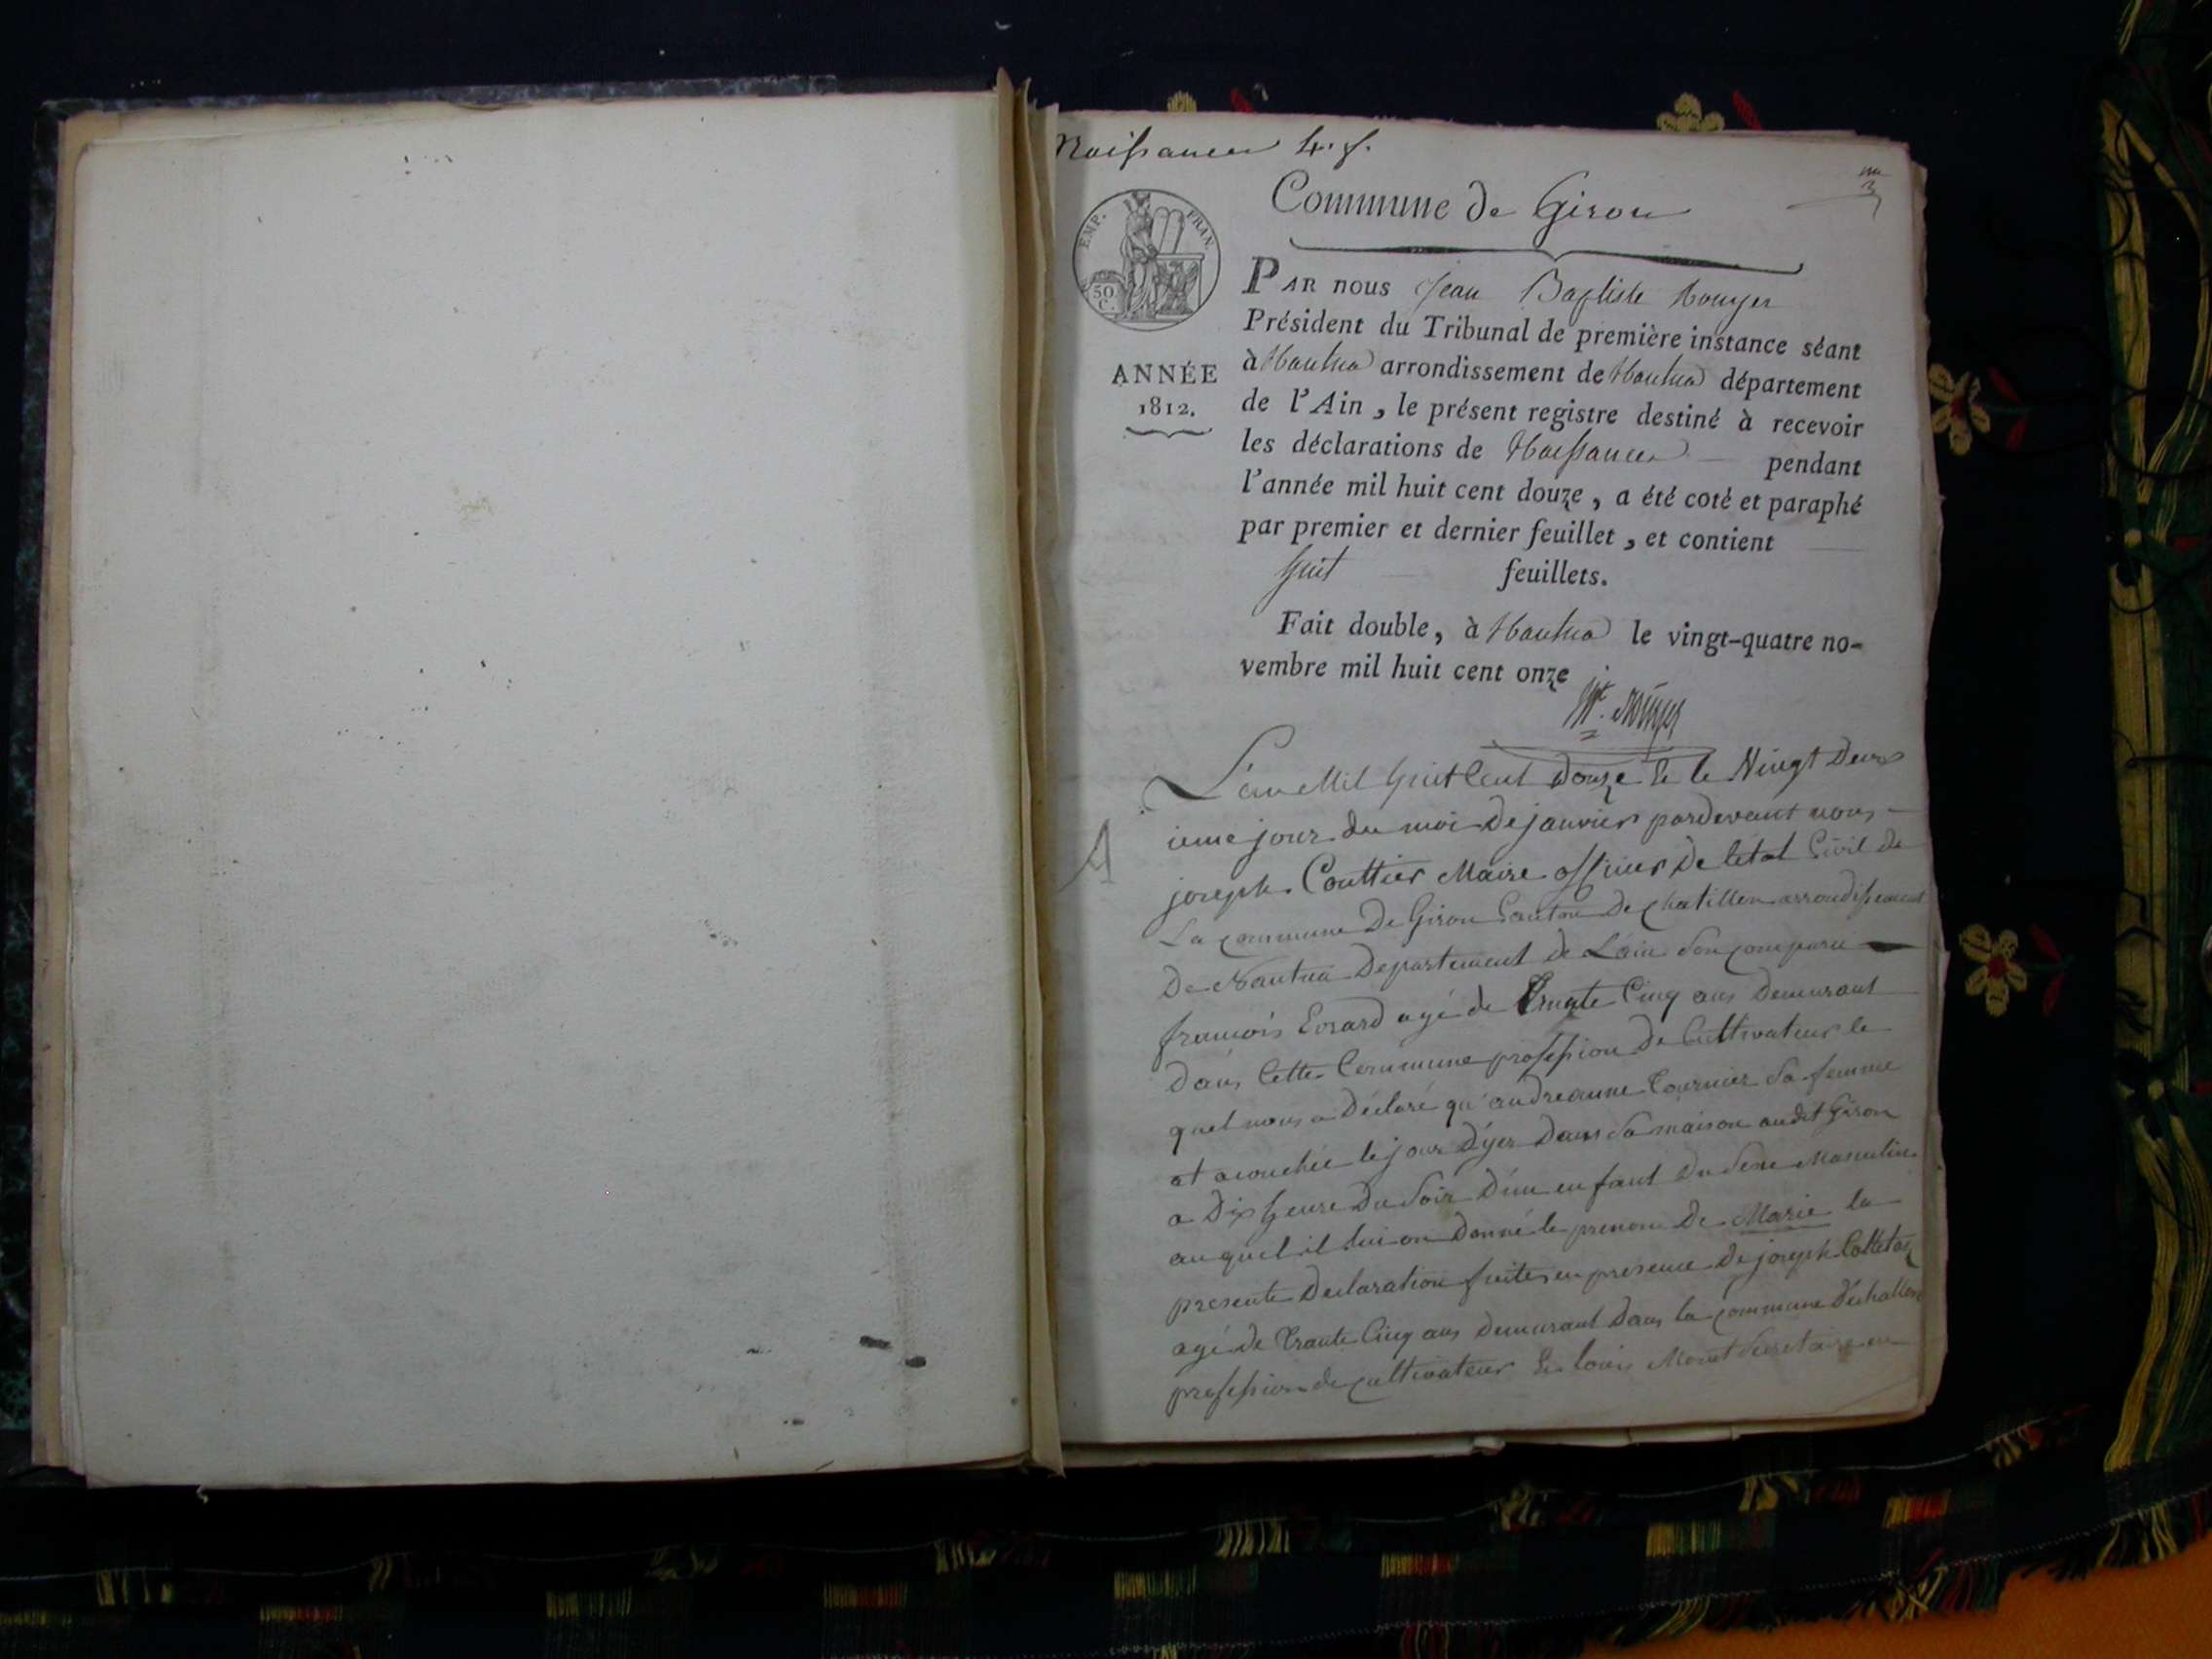 Naissances 4. f.
Commune de Giron
EMP. FRAN.
50 C.
ANNÉE
1812.
PAR nous Jean Baptiste Rouyer
Président du Tribunal de première instance séant
à Nantua arrondissement de Nantua département
de l'Ain, le présent registre destiné à recevoir
les déclarations de Naissances pendant
l'année mil huit cent douze, a été coté et paraphé
par premier et dernier feuillet, et contient
huit feuillets.
Fait double, à Nantua le vingt-quatre no-
vembre mil huit cent onze
L'an Mil huit Cent Douze Et le Vingt Deux
ieme jour du moi De janvier pardevant nous
joseph Couttier Maire officier De létat Civil de
La commune De Giron Canton De chatillon arrondissement
De Nantua Departement de Lain Son comparu
francois Evrard agé de Trente Cinq ans Demeurant
Dans Cette Commune profession De Cultivateur le
quel nous a Déclaré qu'andreanne Tournier Sa femme
at acouchée le jour D'yer Dans Sa maison audit Giron
a Dix heure Du Soir D'un enfant Du Sexe Masculin
auquel il lui on Donné le prenom De Marie la
presente Declaration faites en presence De joseph Collet
agé de Trante Cinq ans Demeurant Dans la commune
profession de cultivateur Et louis Monet Secretaire en